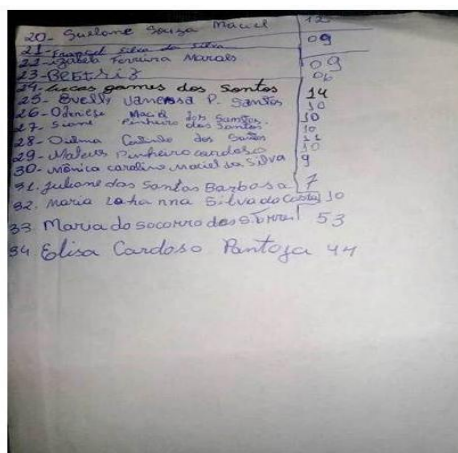 20- Suelane Souza Maciel 12
21- Silva da Silva 09
22- izabela Ferreira Moraes 09
23- BEatriz 06
24- Lucas gomes dos Santos 14
25- Evelly Vanessa P. Santos 10
26- Maciel dos Santos. 10
27- Pinheiro dos Santos 10
28- dos Santos 11
29- Mateus Pinheiro cardoso 10
30- Mônica caroline maciel da Silva 9
31. Juliane dos Santos Barbosa 7
32. Maria Silva da Costa 10
33 Maria do socorro dos 53
34 Elisa Cardoso Pantoja 44